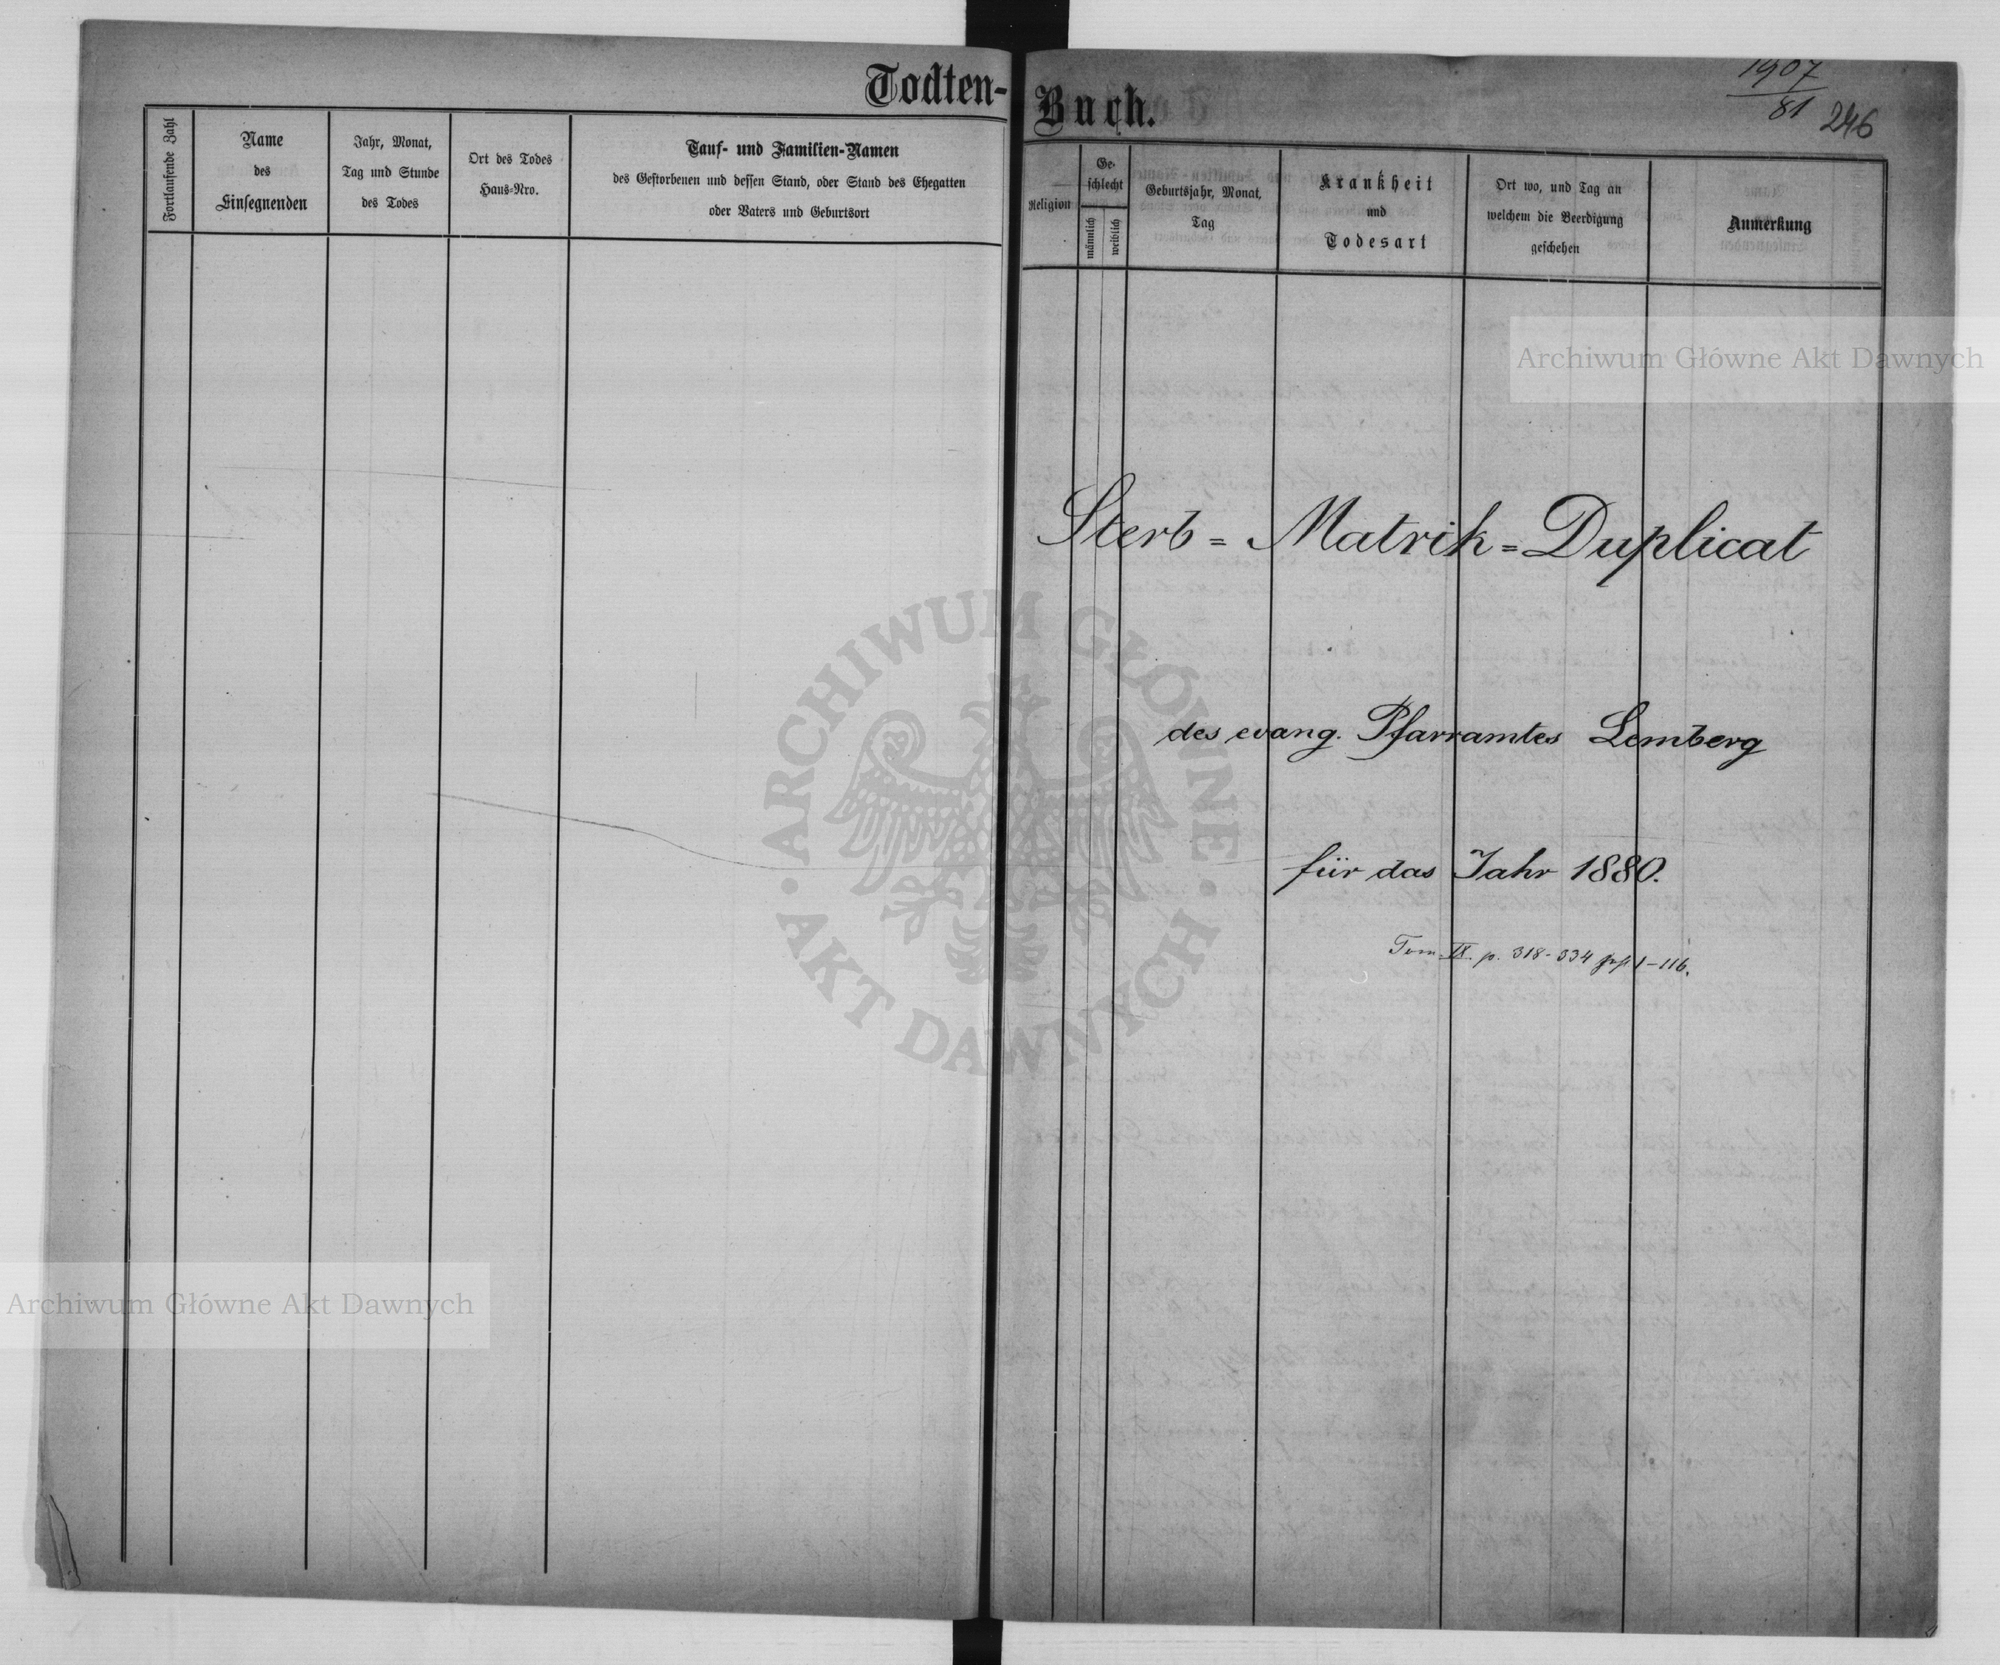 Todten-
Fortlaufende Zahl
Name
des
Einsegnenden
Jahr, Monat,
Tag und Stunde
des Todes
Ort des Todes
Haus-Nro.
Tauf- und Familien-Namen
des Gestorbenen und dessen Stand, oder Stand des Ehegatten
oder Vaters und Geburtsort
Buch.
1907
81
246
Religion
Ge-
schlecht
männlich
weiblich
Geburtsjahr, Monat,
Tag
Krankheit
und
Todesart
Ort wo, und Tag an
welchem die Beerdigung
geschehen
Anmerkung
Archiwum Główne Akt Dawnych
Sterb = Matrik = Duplicat
des evang. Pfarramtes Lemberg
für das Jahr 1880.
Tom IX. p. 318-334 1-116.
ARCHIWUM GŁÓWNE
AKT DAWNYCH
Archiwum Główne Akt Dawnych